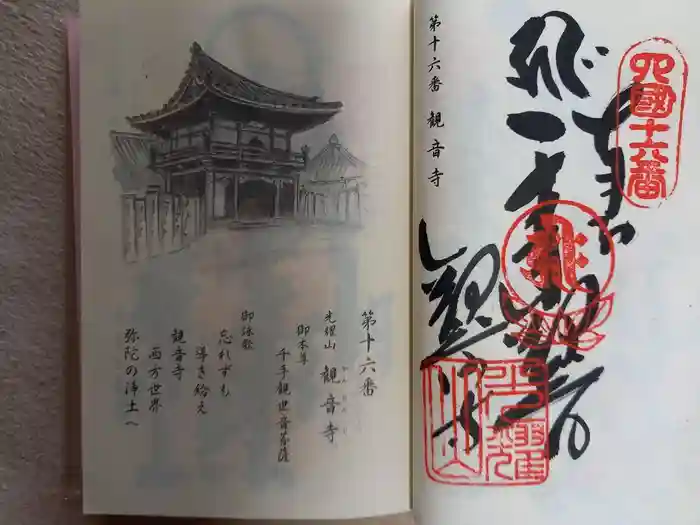 第十六番
光耀山 観音寺
御本尊
千手観世音菩薩
御詠歌
忘れずも
導き給え
観音寺
西方世界
弥陀の浄土へ
第十六番 観音寺
四國十六番
奉
観音寺